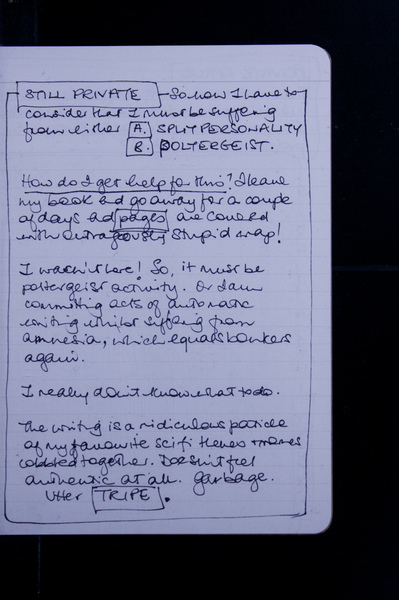 STILL PRIVATE – So now I have to
consider that I must be suffering
from either A. SPLIT PERSONALITY
B. POLTERGEIST.
How do I get help for this? I leave
my book and go away for a couple
of days and pages are covered
with outrageously stupid crap!
I wasn't here! So, it must be
poltergeist activity. Or I am
committing acts of automatic
writing whilst suffering from
amnesia, which equals bonkers
again.
I really don't know what to do.
The writing is a ridiculous pastiche
of my favourite scifi themes + names
cobbled together. Doesn't feel
authentic at all. Garbage.
Utter TRIPE.